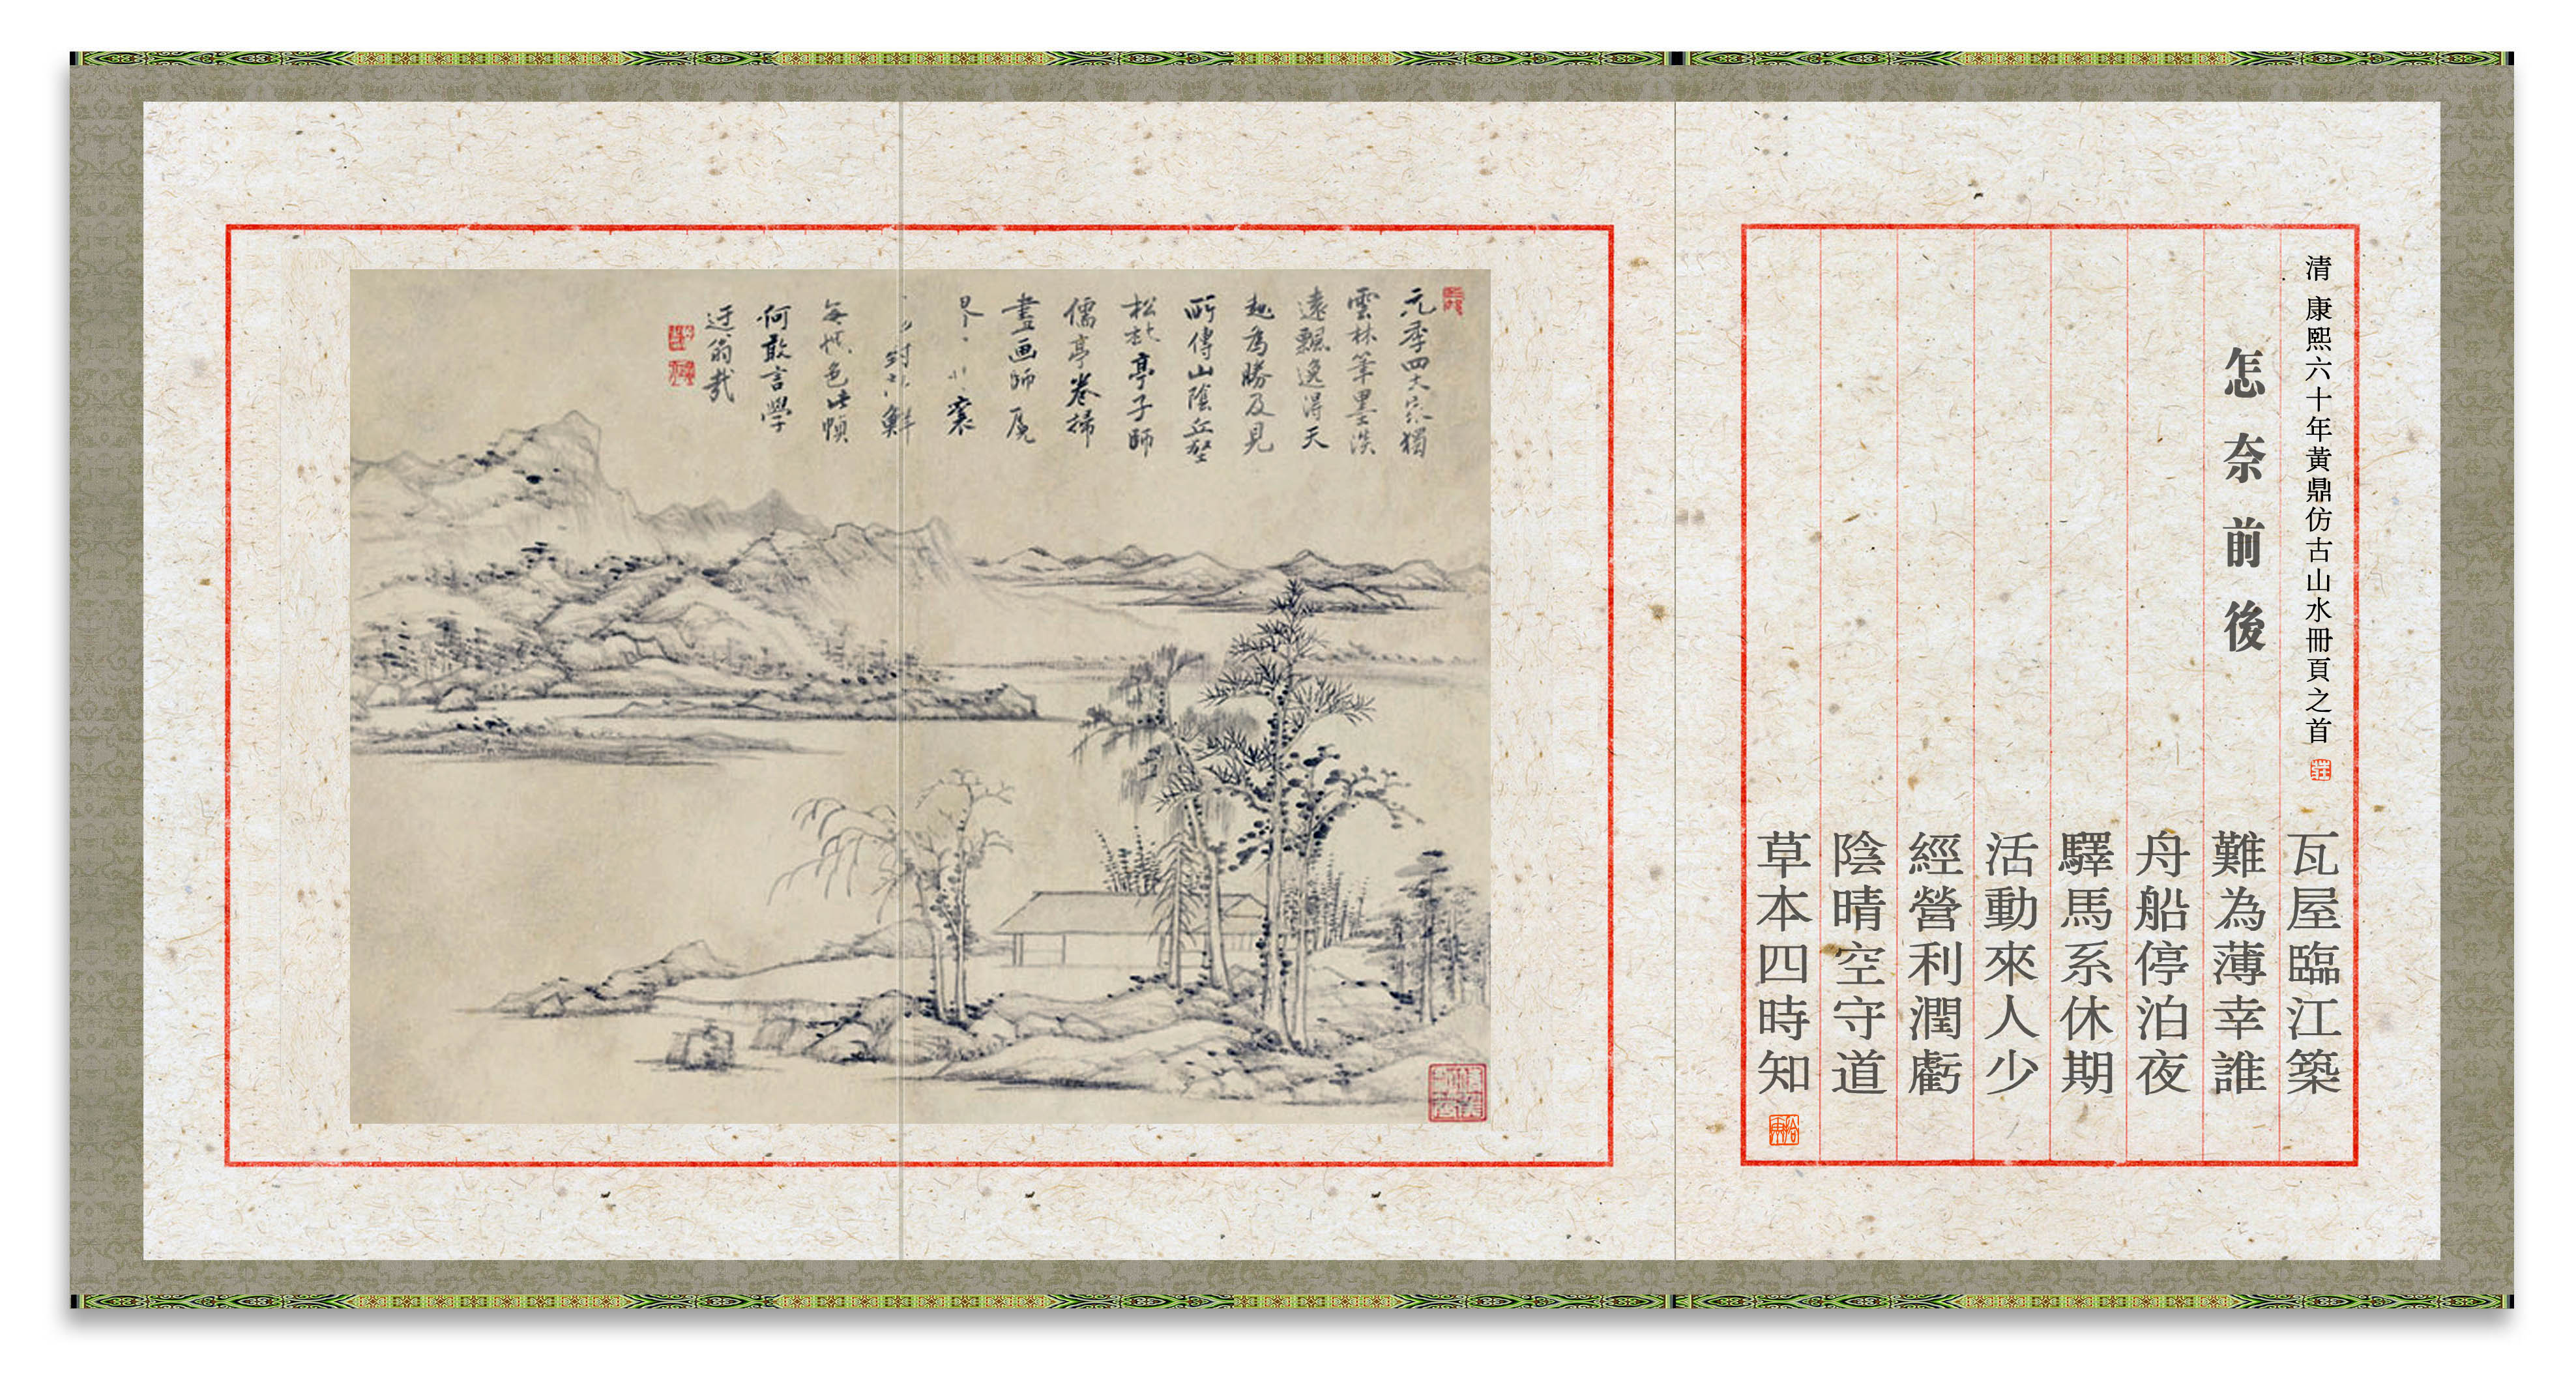 清 康熙六十年黃鼎仿古山水冊頁之首
怎奈前後
瓦屋臨江築
難為薄幸誰
舟船停泊夜
驛馬系休期
活動來人少
經營利潤虧
陰晴空守道
草本四時知
元季四大家獨
雲林筆墨淡
遠飄逸得天
趣為勝及見
所傳山陰丘壑
松亭子師
儒亭卷掃
畫画師屐
界
對鮮
色此幀
何敢言學
迂翁哉